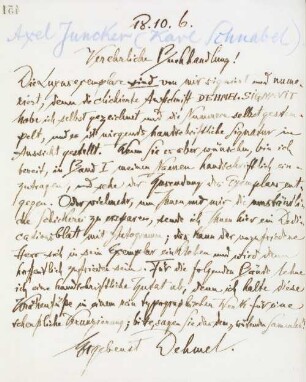 184
B. 10. 6.
Axel Juncker (Karl Schnabel)
Verehrliche Buchhandlung!
Die Luxusexemplare sind von mir signiert und nume-
riert, denn die clichierte Aufschrift DEHMEL SIGNAVIT
habe ich selbst gezeichnet und die Nummern selbst gestem-
pelt, und es ist nirgends handschriftliche Signatur in
Aussicht gestellt. Wenn Sie es aber wünschen, bin ich
bereit, in Band I meinen Namen handschriftlich ein-
zutragen, und sehe der Zusendung des Exemplars ent-
gegen. Oder vielmehr, um Ihnen und mir die umständlichen
Scherereien zu ersparen, sende ich Ihnen hier ein Dedi-
cationsblatt mit Autogramm; das kann der unzufriedene
Herr sich in sein Exemplar einkleben und wird dann
hoffentlich zufrieden sein. Für die folgenden Bände lehne
ich eine handschriftliche Zutat ab, denn ich halte diese
in einem rein typographischen Werk für eine
bitte, sagen Sie das dem wütenden Sammler!
Ergebenst Dehmel.